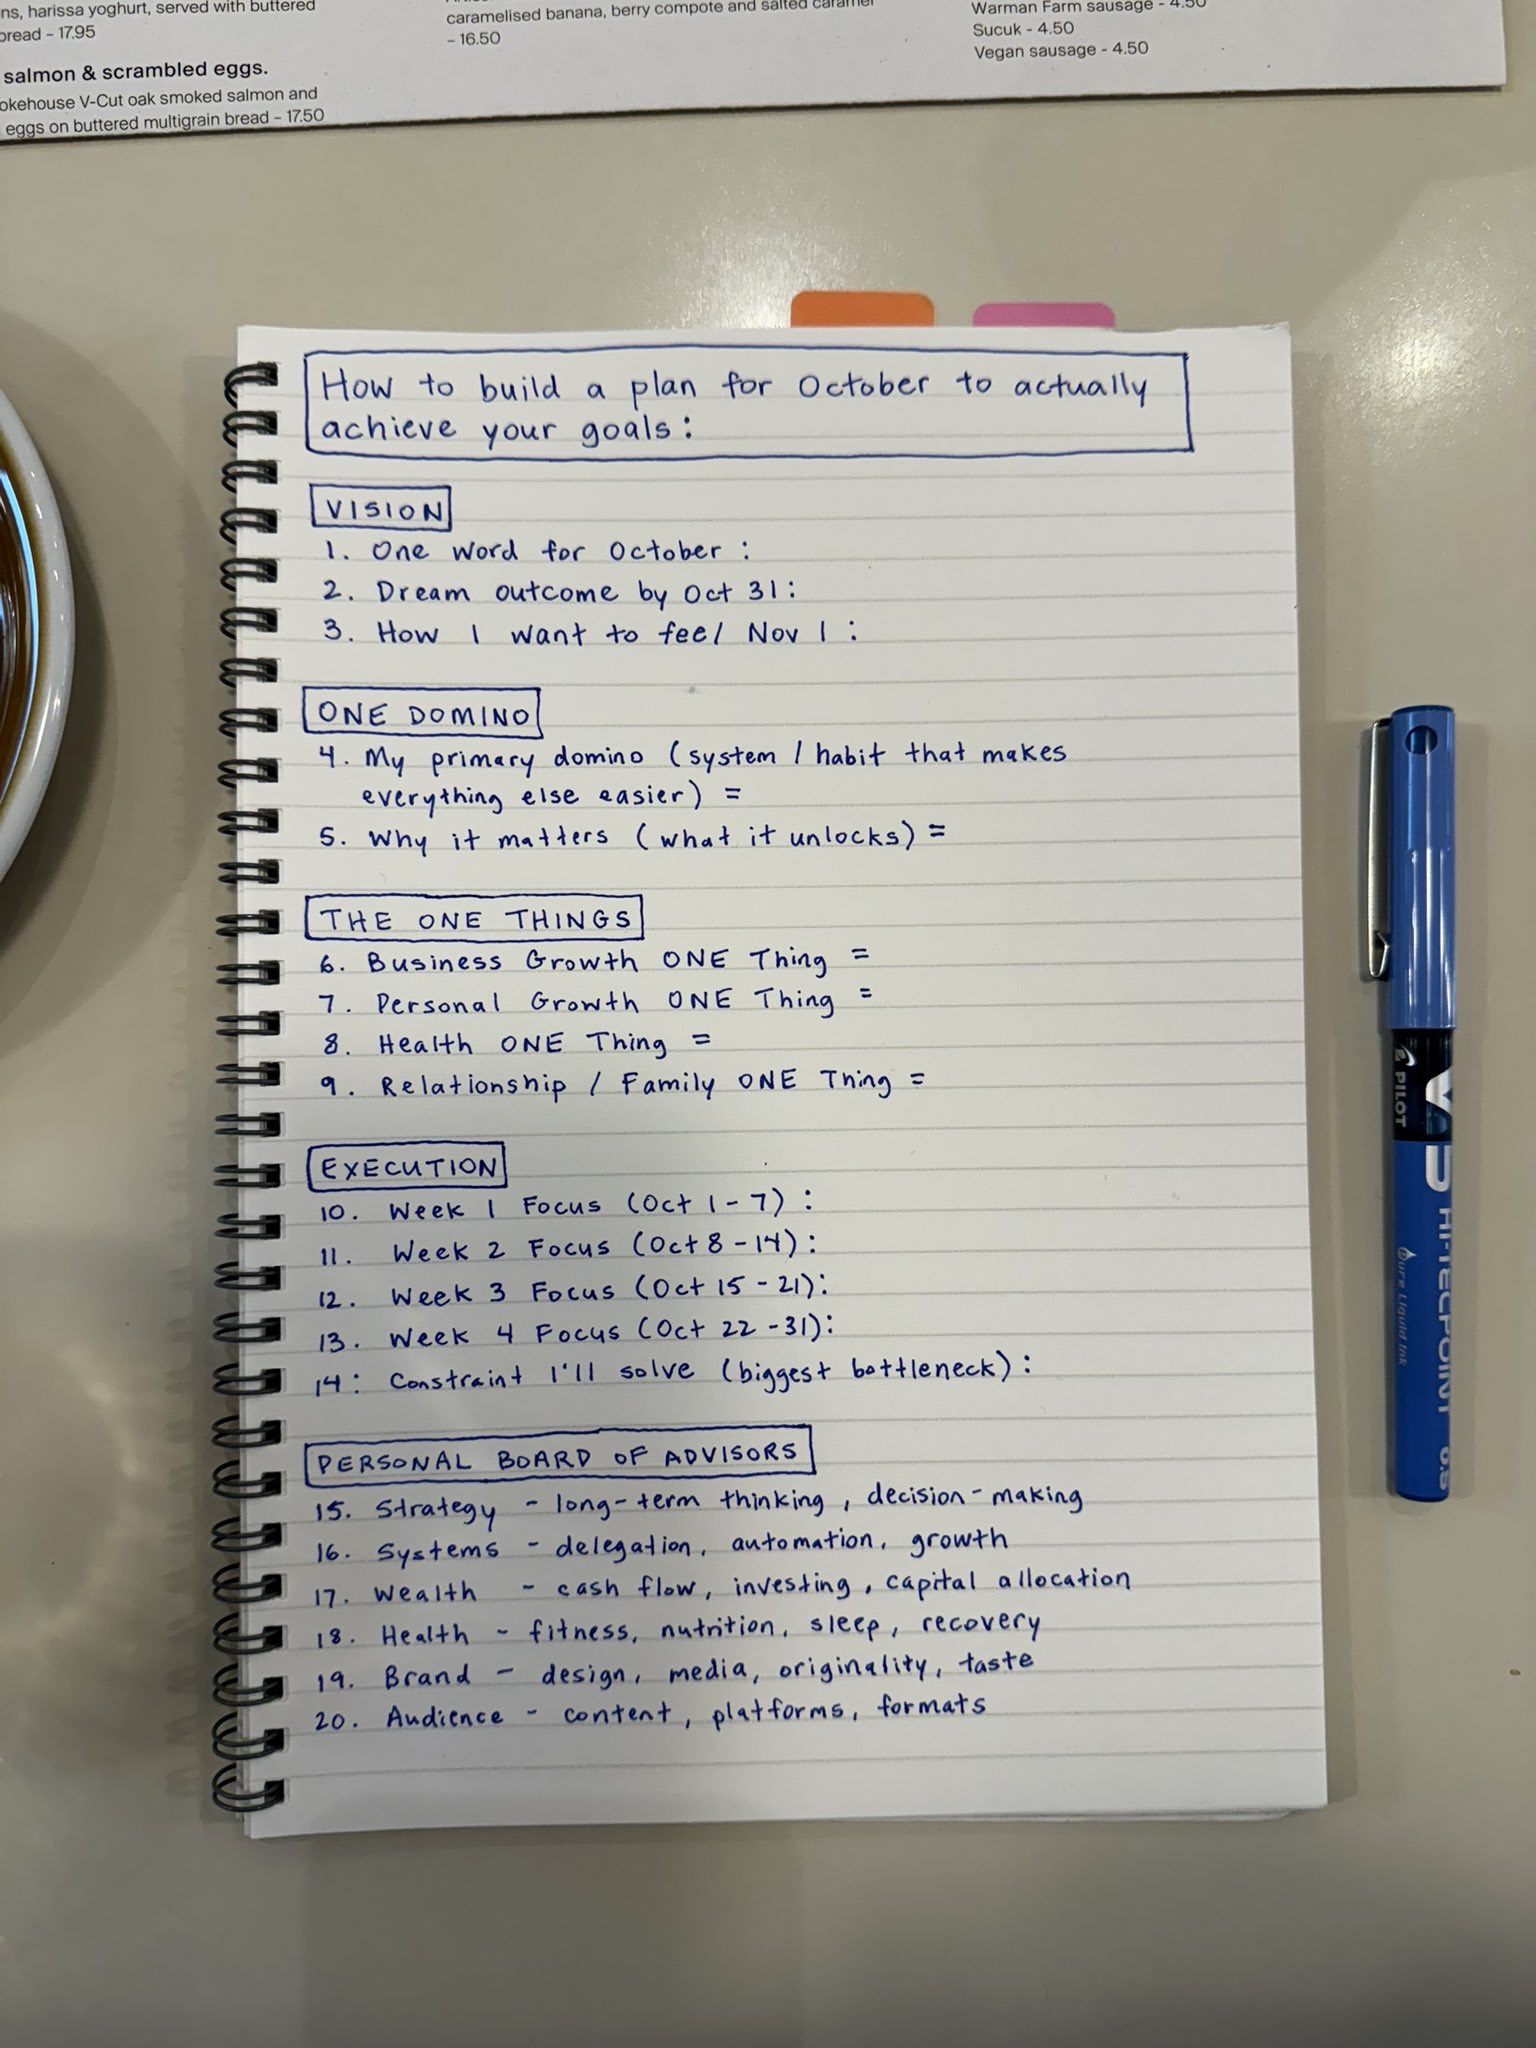 ns, harissa yoghurt, served with buttered
bread – 17.95
salmon & scrambled eggs.
okehouse V-Cut oak smoked salmon and
eggs on buttered multigrain bread – 17.50
caramelised banana, berry compote and salted caramel
– 16.50
Warman Farm sausage - 4.50
Sucuk - 4.50
Vegan sausage - 4.50
How to build a plan for October to actually
achieve your goals:
VISION
1. One word for October :
2. Dream outcome by Oct 31:
3. How I want to feel Nov 1 :
ONE DOMINO
4. My primary domino (system / habit that makes
everything else easier) =
5. Why it matters (what it unlocks) =
THE ONE THINGS
6. Business Growth ONE Thing =
7. Personal Growth ONE Thing =
8. Health ONE Thing =
9. Relationship / Family ONE Thing =
EXECUTION
10. Week 1 Focus (Oct 1 - 7) :
11. Week 2 Focus (Oct 8 - 14) :
12. Week 3 Focus (Oct 15 - 21):
13. Week 4 Focus (Oct 22 - 31):
14: Constraint I'll solve (biggest bottleneck) :
PERSONAL BOARD OF ADVISORS
15. Strategy - long-term thinking, decision-making
16. Systems - delegation, automation, growth
17. Wealth - cash flow, investing, capital allocation
18. Health - fitness, nutrition, sleep, recovery
19. Brand - design, media, originality, taste
20. Audience - content, platforms, formats
PILOT
V5 HI-TECPOINT 0.5
Pure Liquid Ink